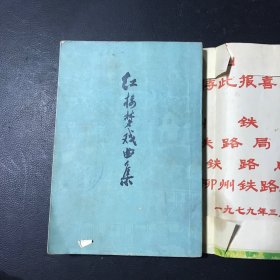 红楼梦戏曲集
寿此报喜
铁
铁路局
铁路
柳州铁路
一九七九年三